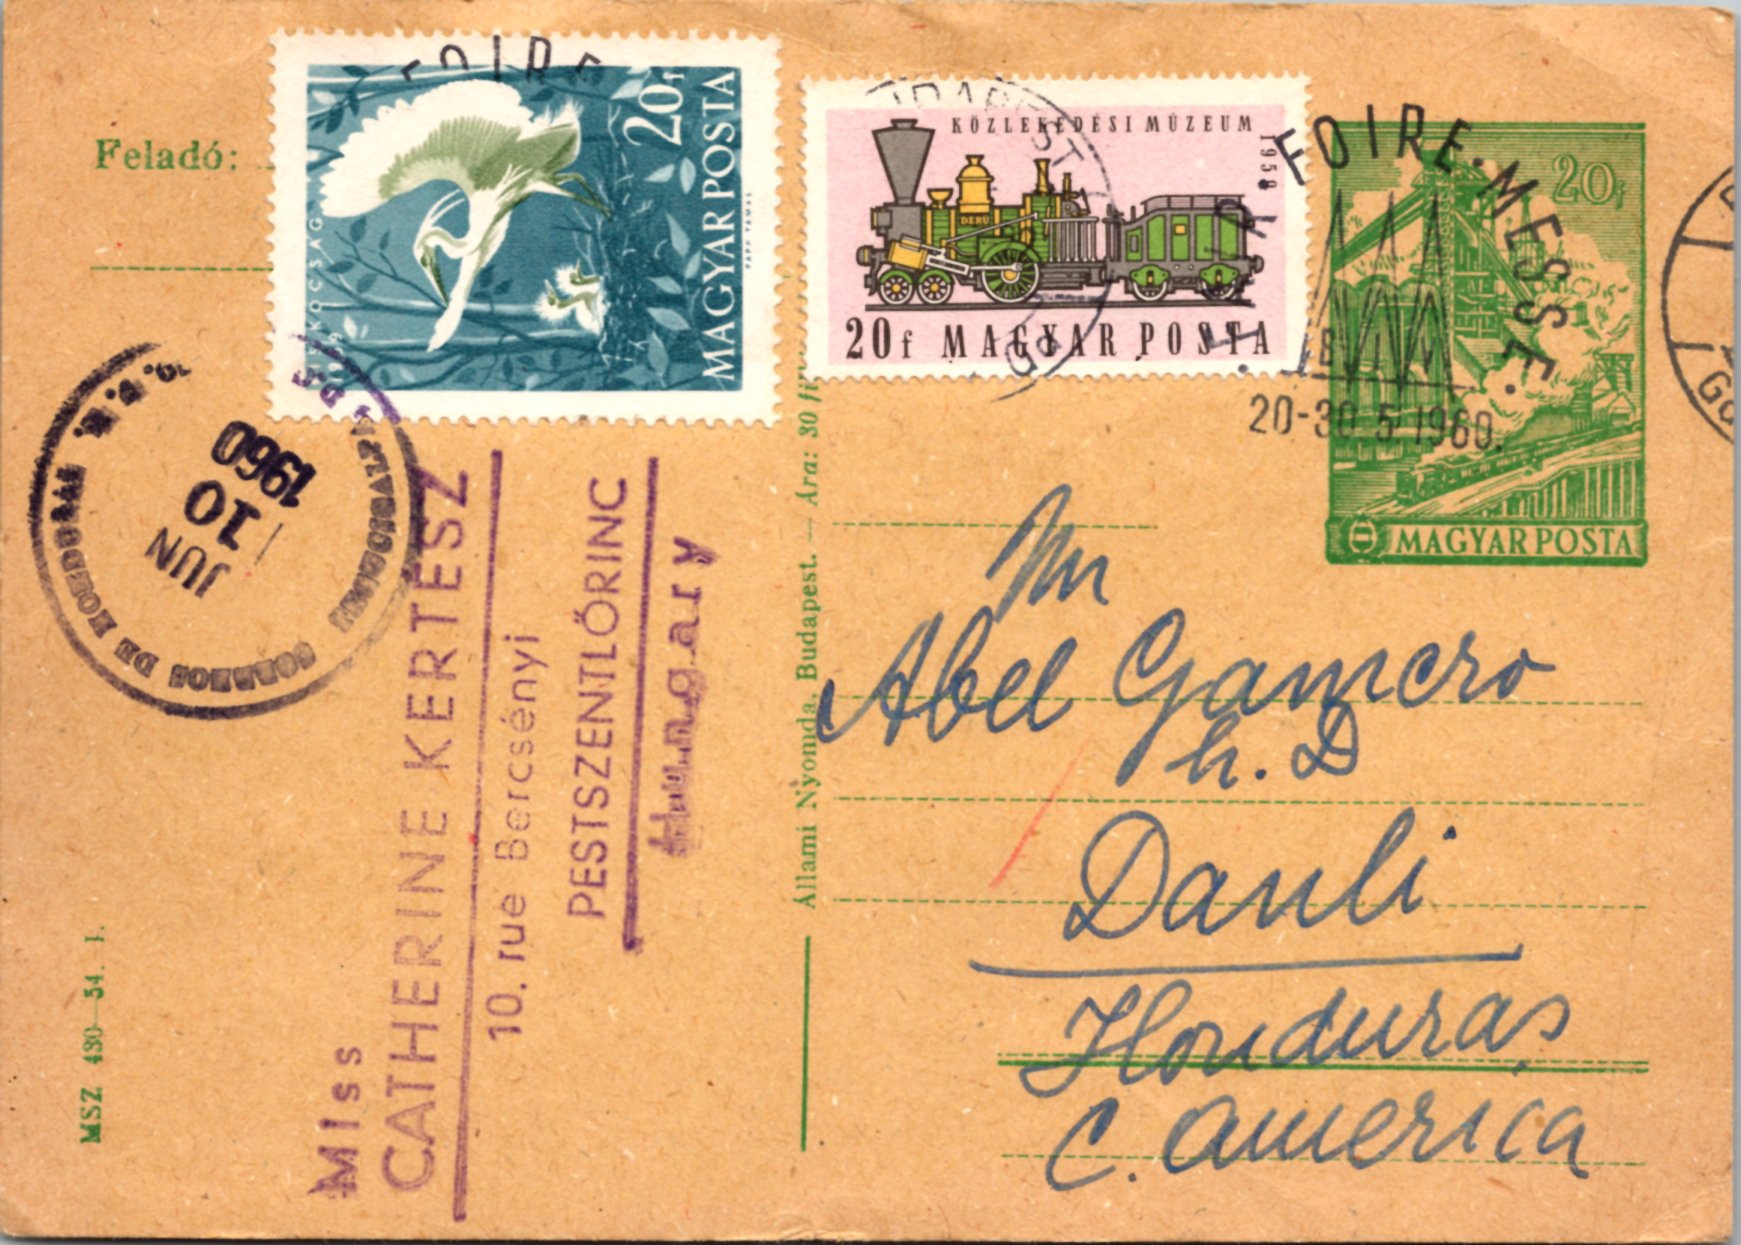 Feladó:
20f
MAGYAR POSTA
KÓCSAG
PAPP TAMÁS
KÖZLEKEDÉSI MÚZEUM
1959
DERŰ
20f MAGYAR POSTA
FOIRE. MESSE.
20-30 5 1960.
20f
MAGYAR POSTA
JUN
10
1960
CORREOS DE HONDURAS
Miss
CATHERINE KERTESZ
10. rue Bercsényi
PESTSZENTLŐRINC
Hungary
Állami Nyomda, Budapest. — Ára: 30 fil
MSZ 430—54. 1.
Mr
Abel Gamero
h. D
Danli
Honduras
C. America